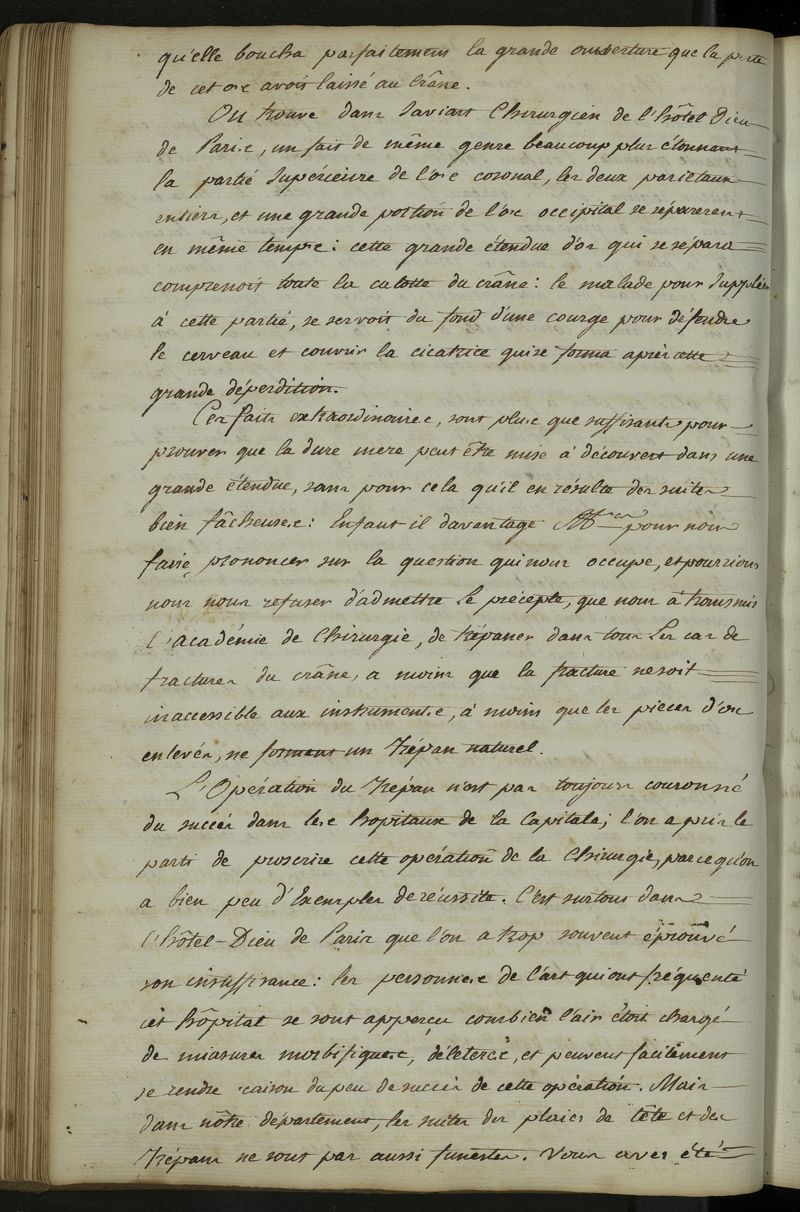 qu'elle boucha parfaitement la grande ouverture que la perte
de cet os avoit laissé au Crâne.
On trouve dans Saviart Chirurgien de l'hôtel Dieu
de Paris, un fait de même genre beaucoup plus étonnant
la partie Supérieure de l'os coronal, les deux parietaux
entiers, et une grande portion de l'os occipital se séparerent
en même temps: cette grande étendue d'os qui se sépara
comprenoit toute la calotte du crâne: le malade pour Suppléer
à cette partié, se servoit du fond d'une courge pour défendre
le cerveau et couvrir la cicatrice qui se forma après cette
grande déperdition.
Ces faits extraordinaires, sont plus que suffisants pour
prouver que la dure mere peut être mise à découvert dans une
grande étendue, sans pour cela qu'il en résulte des suites
bien fâcheuses: Enfaut-il davantage M.rs pour nous
faire prononcer sur la question qui nous occupe, et pourrions
nous nous refuser d'admettre Le précepte, que nous à transmis
L'académie de Chirurgie, de trépaner dans tous Les cas de
fractures du crâne, a moins que la fracture ne soit
inaccessible aux instruments, à moins que les pieces d'os
enlevés, ne forment un trépan naturel.
L'Opération du trépan n'est pas toujours couronné
du succès dans les hopitaux de la Capitale; l'on a pris le
parti de proscrire cette opération de la Chirurgie, parce qu'on
a bien peu d'Exemples de réussite. C'est surtout dans
l'hôtel-Dieu de Paris que l'on a trop souvent éprouvé
son insuffisance: les personnes de l'art qui ont fréquenté
cet hôpital se sont apperçu combien l'air étoit chargé
de miasmes morbifiques, déleteres, et peuvent facilement
se rendre raison du peu de succès de cette opération. Mais
dans nôtre département, les suites des plaies de tête et des
trépans ne sont pas aussi funestes. Vous avés été